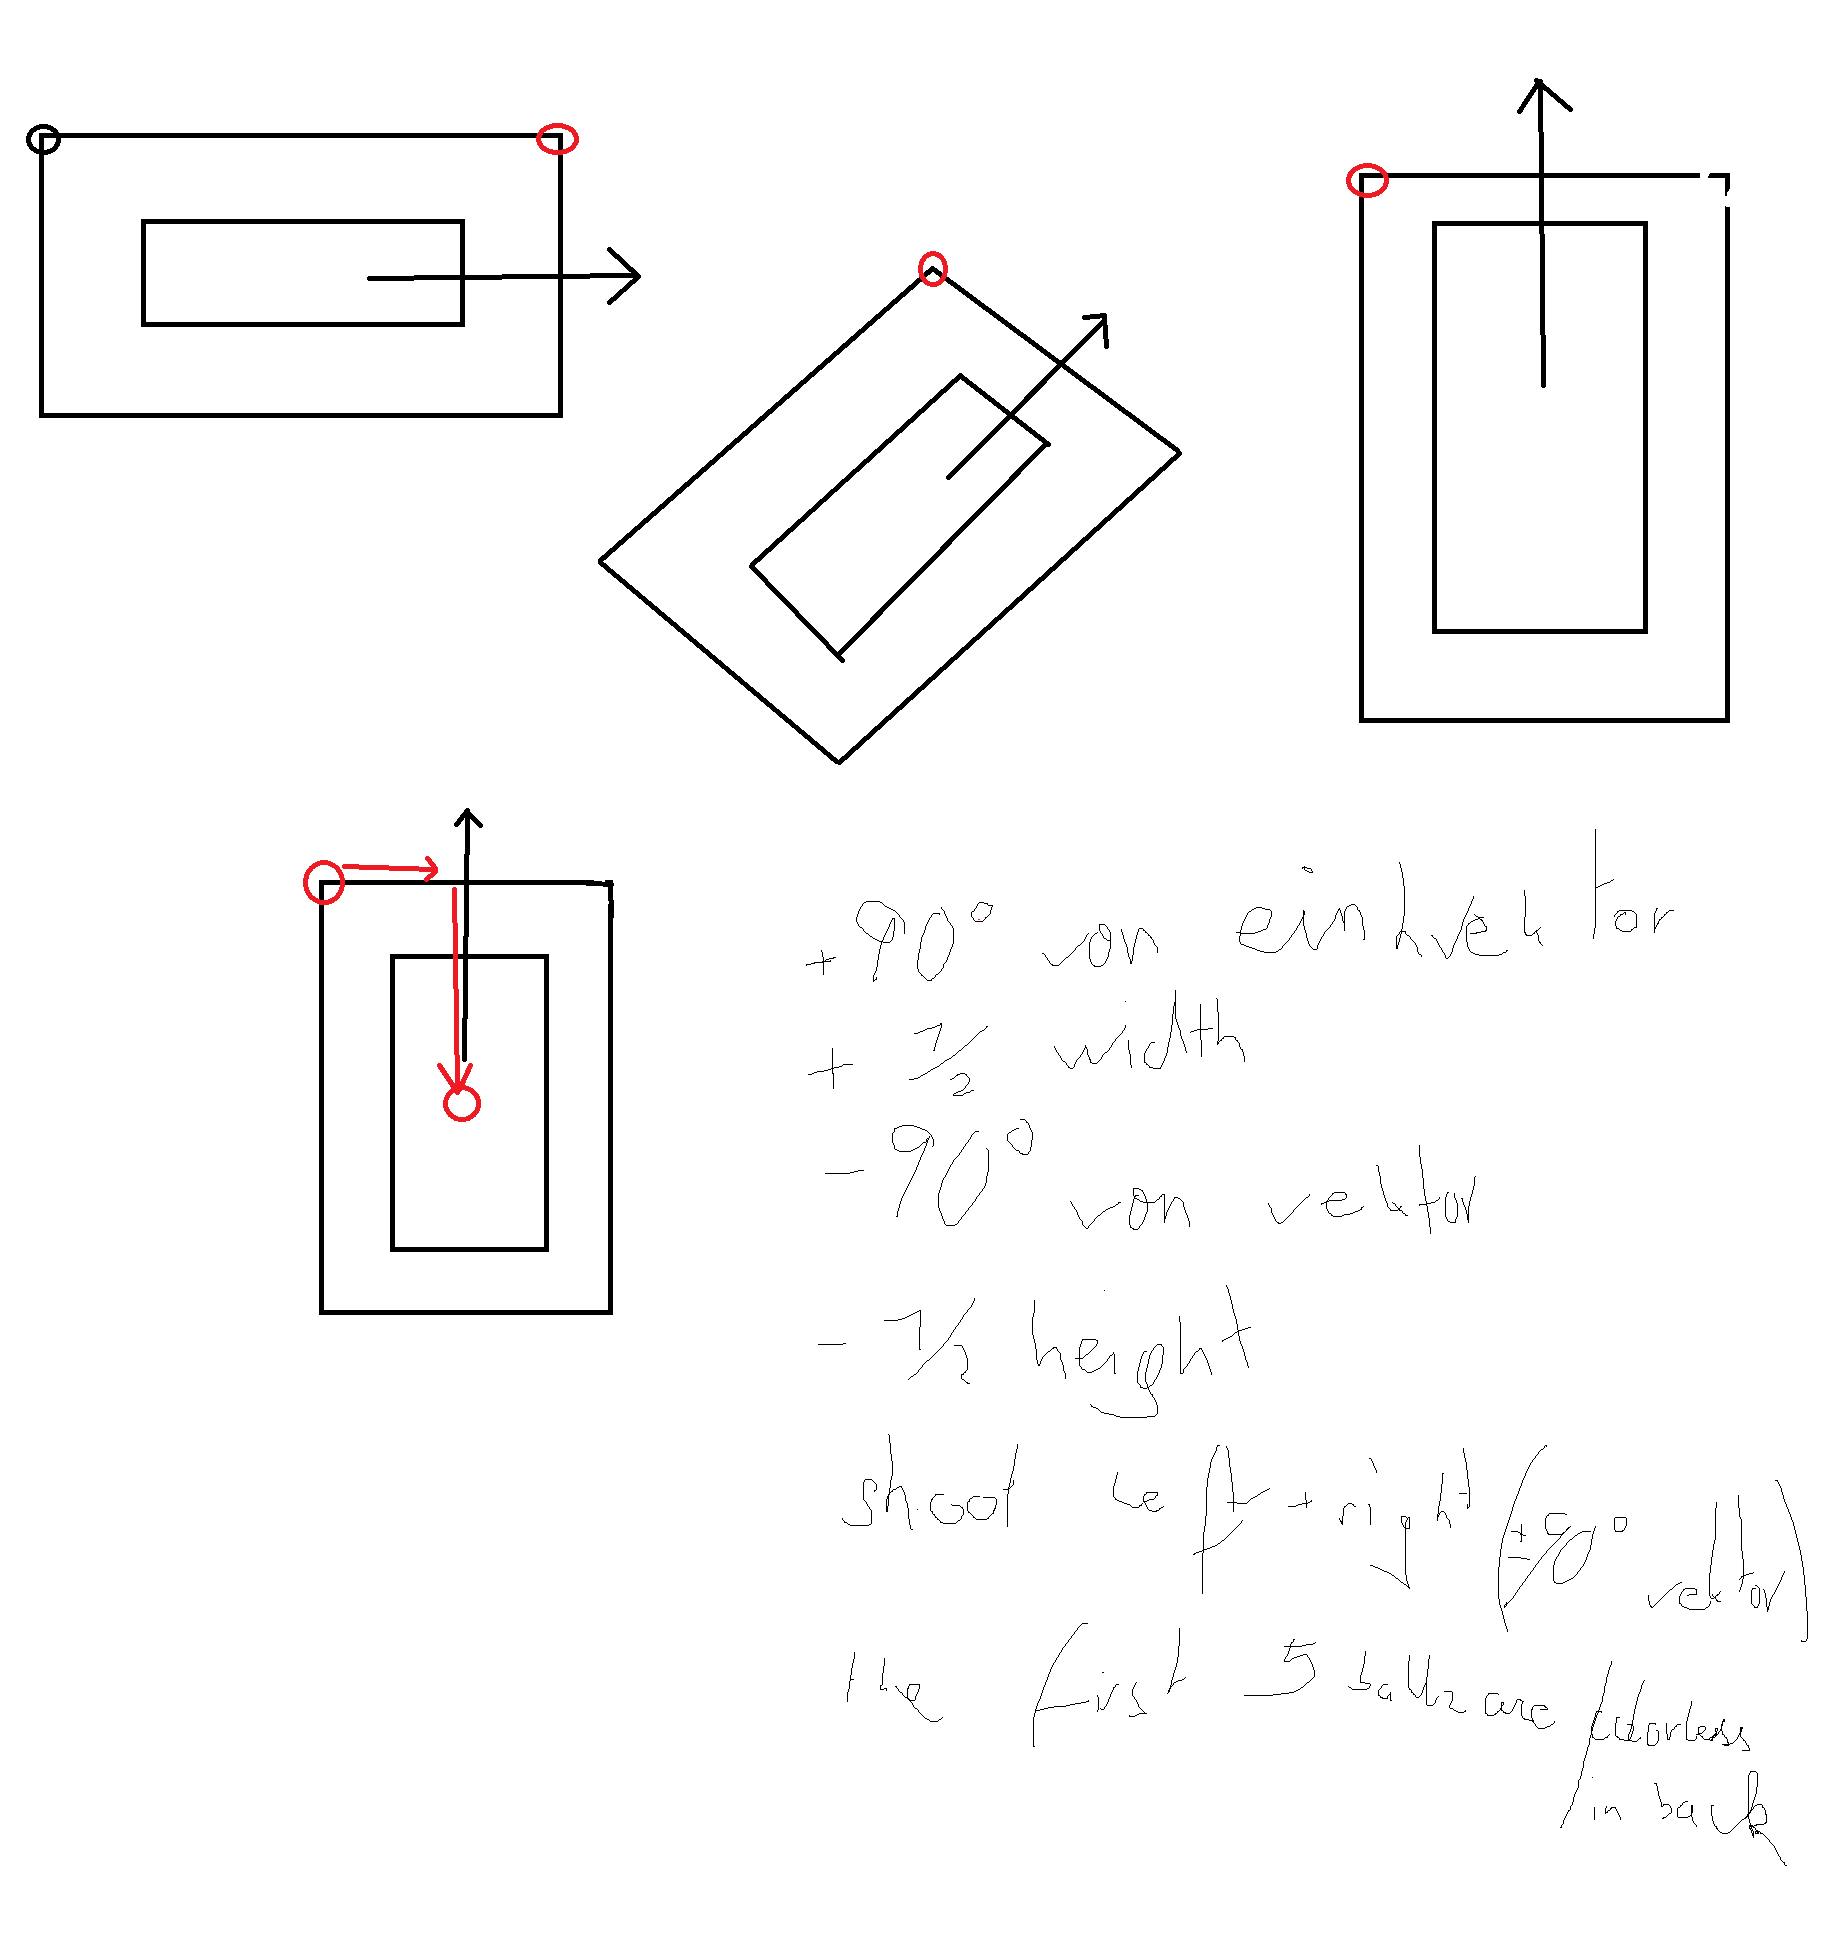 + 90° von einhvektor
+ 1/2 width
- 90° von vektor
- 1/2 height
shoot left + right (± 90° vektor)
the first 5 balls are / colorless
in back